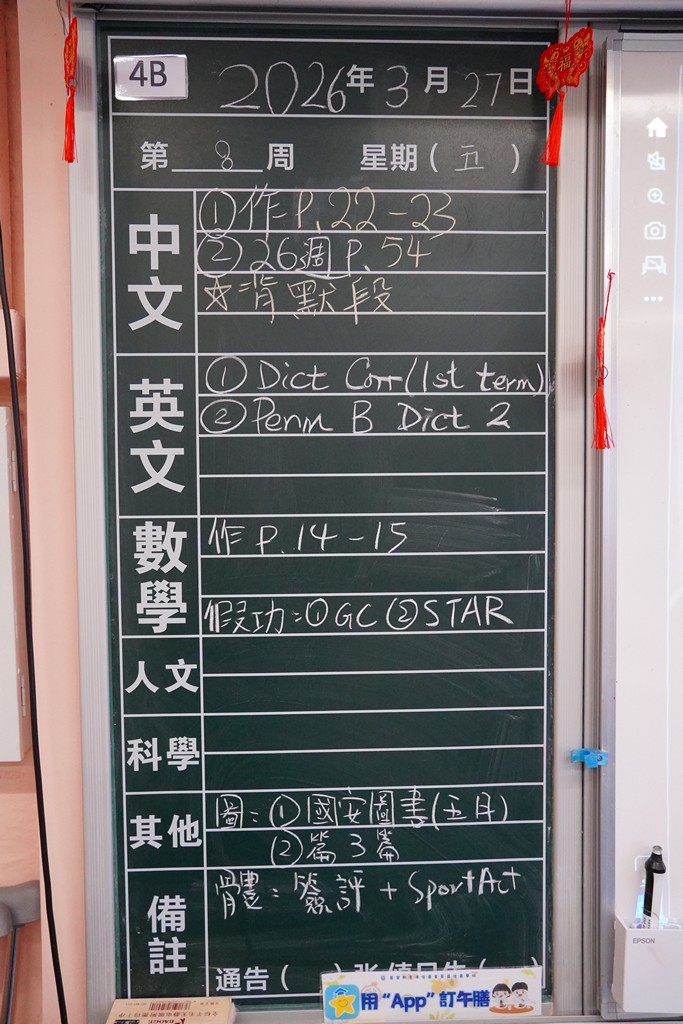 4B
2026年3月27日
第 8 周 星期(五)
中文
①作P.22-23
②26週P.54
☆背默段
英文
① Dict Corr (1st term)
② Penm B Dict 2
數學
作P.14-15
假功:①GC②STAR
人文
科學
其他
圖:①國安圖書(五月)
②篇3篇
備註
體:簽評+SportAct
通告(
用"App"訂午膳
EPSON
福